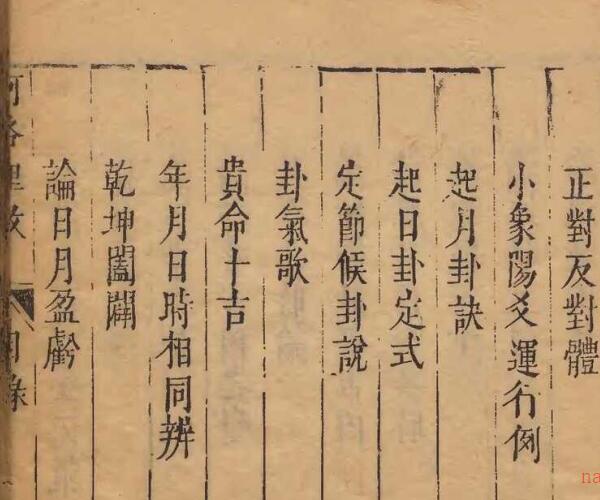 正對反對體
小象陽爻運行例
起月卦訣
起日卦定式
定節候卦說
卦氣歌
貴命十吉
年月日時相同辨
乾坤闔闢
論日月盈虧
河洛理數
目錄
na